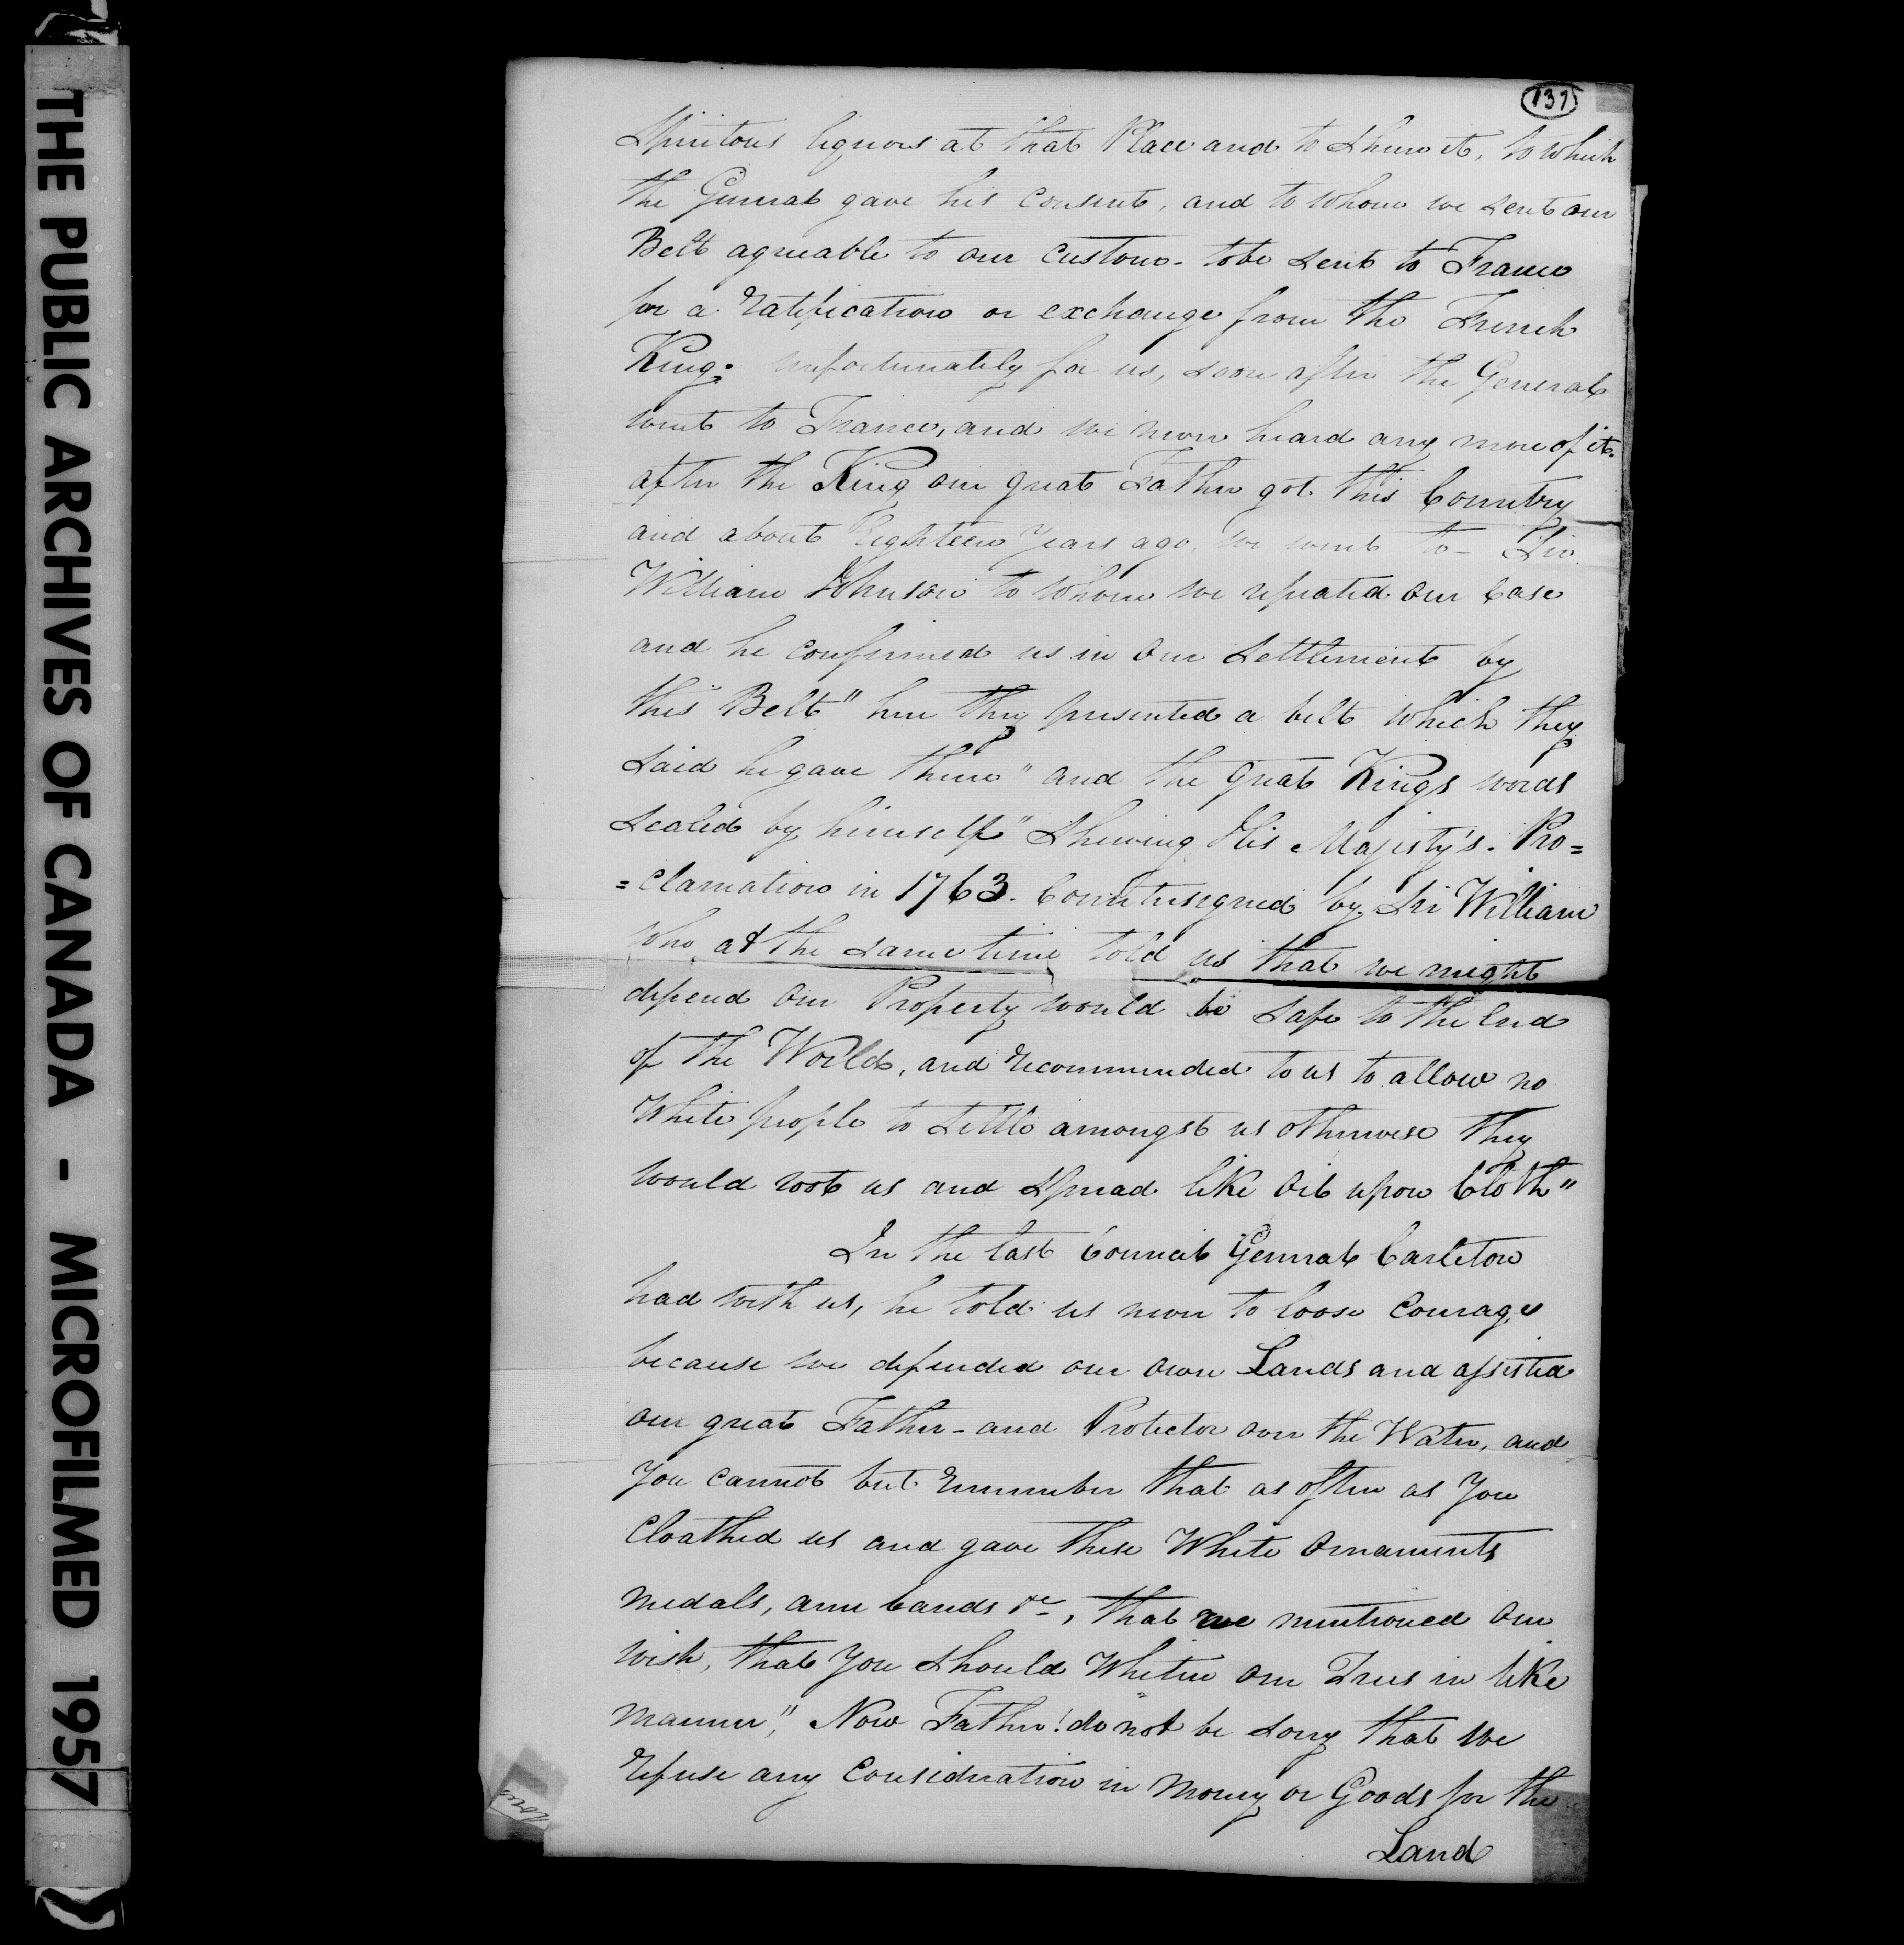 THE PUBLIC ARCHIVES OF CANADA - MICROFILMED 1957
137
Spiritous liquors at that Place and to Shew it, to which
the General gave his consent, and to whom we sent our
Belt agreable to our custom - to be sent to France
for a ratification or exchange from the French
King. unfortunately for us, soon after the General
went to France, and we never heard any more of it.
after the King our great Father got this Country
and about Eighteen Years ago, we went to - Sir
William Johnson to whom we repeated our Case
and he confirmed us in our Settlement by
this Belt" here they presented a belt which they
said he gave them "and the great Kings words
Sealed by himself" Shewing His Majesty's. Pro=
=clamation in 1763. Countersigned by Sir William
who at the same time told us that we might
depend our Property would be safe to the End
of the World, and recommended to us to allow no
White people to Settle amongst us otherwise they
would root us and spread like Oil upon Cloth"
In the last Council General Carleton
had with us, he told us never to loose Courage
because we defended our own Lands and assisted
our great Father - and Protector over the Water, and
You cannot but remember that as often as You
Cloathed us and gave these White Ornaments
Medals, arm bands &c, that we mentioned our
wish, that You should Whiten our Trees in like
manner," Now Father! do not be sorry that we
refuse any Consideration in Money or Goods for the
Land